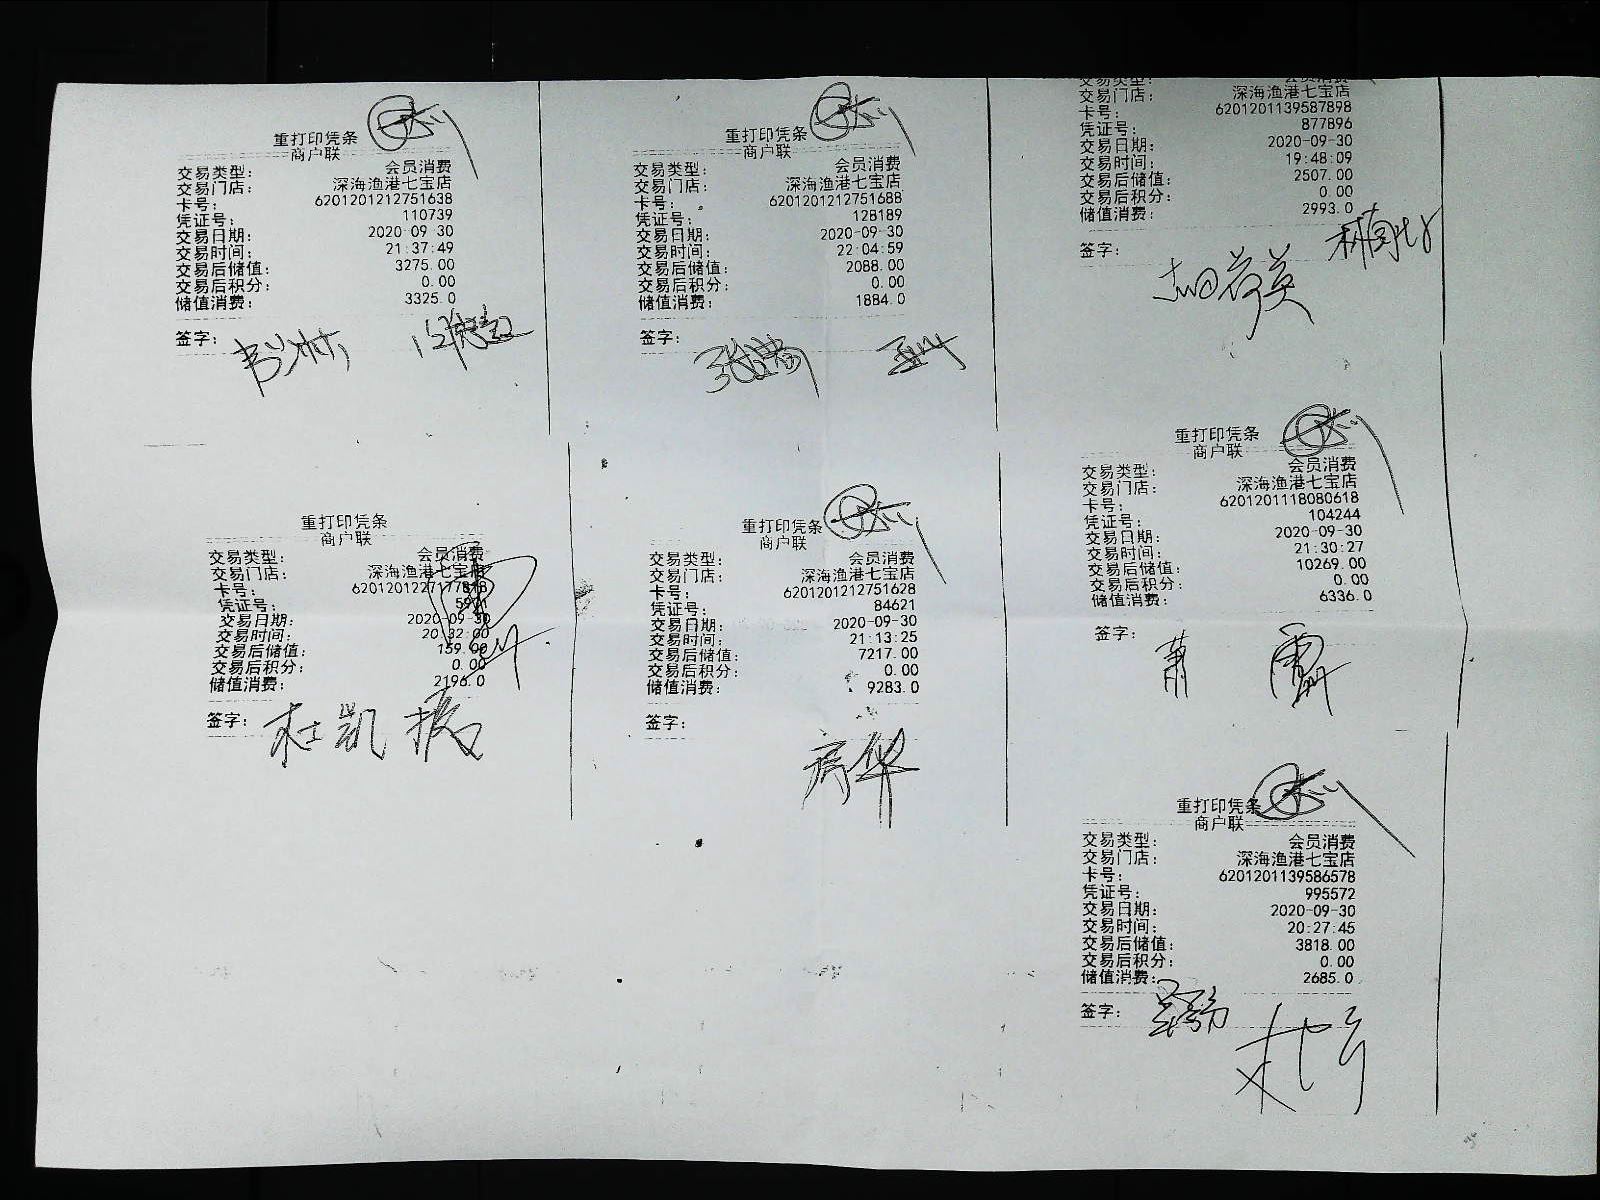 重打印凭条
商户联
交易类型： 会员消费
交易门店： 深海渔港七宝店
卡号： 6201201212751638
凭证号： 110739
交易日期： 2020-09-30
交易时间： 21:37:49
交易后储值： 3275.00
交易后积分： 0.00
储值消费： 3325.0
签字：
重打印凭条
商户联
交易类型： 会员消费
交易门店： 深海渔港七宝店
卡号： 6201201212751688
凭证号： 128189
交易日期： 2020-09-30
交易时间： 22:04:59
交易后储值： 2088.00
交易后积分： 0.00
储值消费： 1884.0
签字：
交易类型： 会员消费
交易门店： 深海渔港七宝店
卡号： 6201201139587898
凭证号： 877896
交易日期： 2020-09-30
交易时间： 19:48:09
交易后储值： 2507.00
交易后积分： 0.00
储值消费： 2993.0
签字：
重打印凭条
商户联
交易类型： 会员消费
交易门店： 深海渔港七宝店
卡号：
凭证号：
交易日期： 2020-09-30
交易时间： 20:32:00
交易后储值： 159.00
交易后积分： 0.00
储值消费： 2196.0
签字： 杜凯
重打印凭条
商户联
交易类型： 会员消费
交易门店： 深海渔港七宝店
卡号： 6201201212751628
凭证号： 84621
交易日期： 2020-09-30
交易时间： 21:13:25
交易后储值： 7217.00
交易后积分： 0.00
储值消费： 9283.0
签字：
高华
重打印凭条
商户联
交易类型： 会员消费
交易门店： 深海渔港七宝店
卡号： 6201201118080618
凭证号： 104244
交易日期： 2020-09-30
交易时间： 21:30:27
交易后储值： 10269.00
交易后积分： 0.00
储值消费： 6336.0
签字：
萧
重打印凭条
商户联
交易类型： 会员消费
交易门店： 深海渔港七宝店
卡号： 6201201139586578
凭证号： 995572
交易日期： 2020-09-30
交易时间： 20:27:45
交易后储值： 3818.00
交易后积分： 0.00
储值消费： 2685.0
签字：